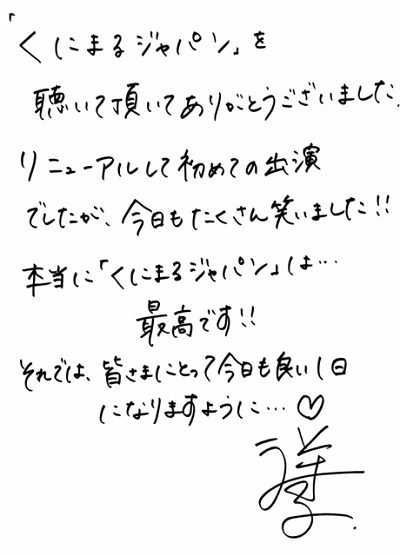 「くにまるジャパン」を
聴いて頂いてありがとうございました.
リニューアルして初めての出演
でしたが、今日もたくさん笑いました!!
本当に「くにまるジャパン」は…
最高です!!
それでは、皆さまにとって今日も良い1日
になりますように…♡